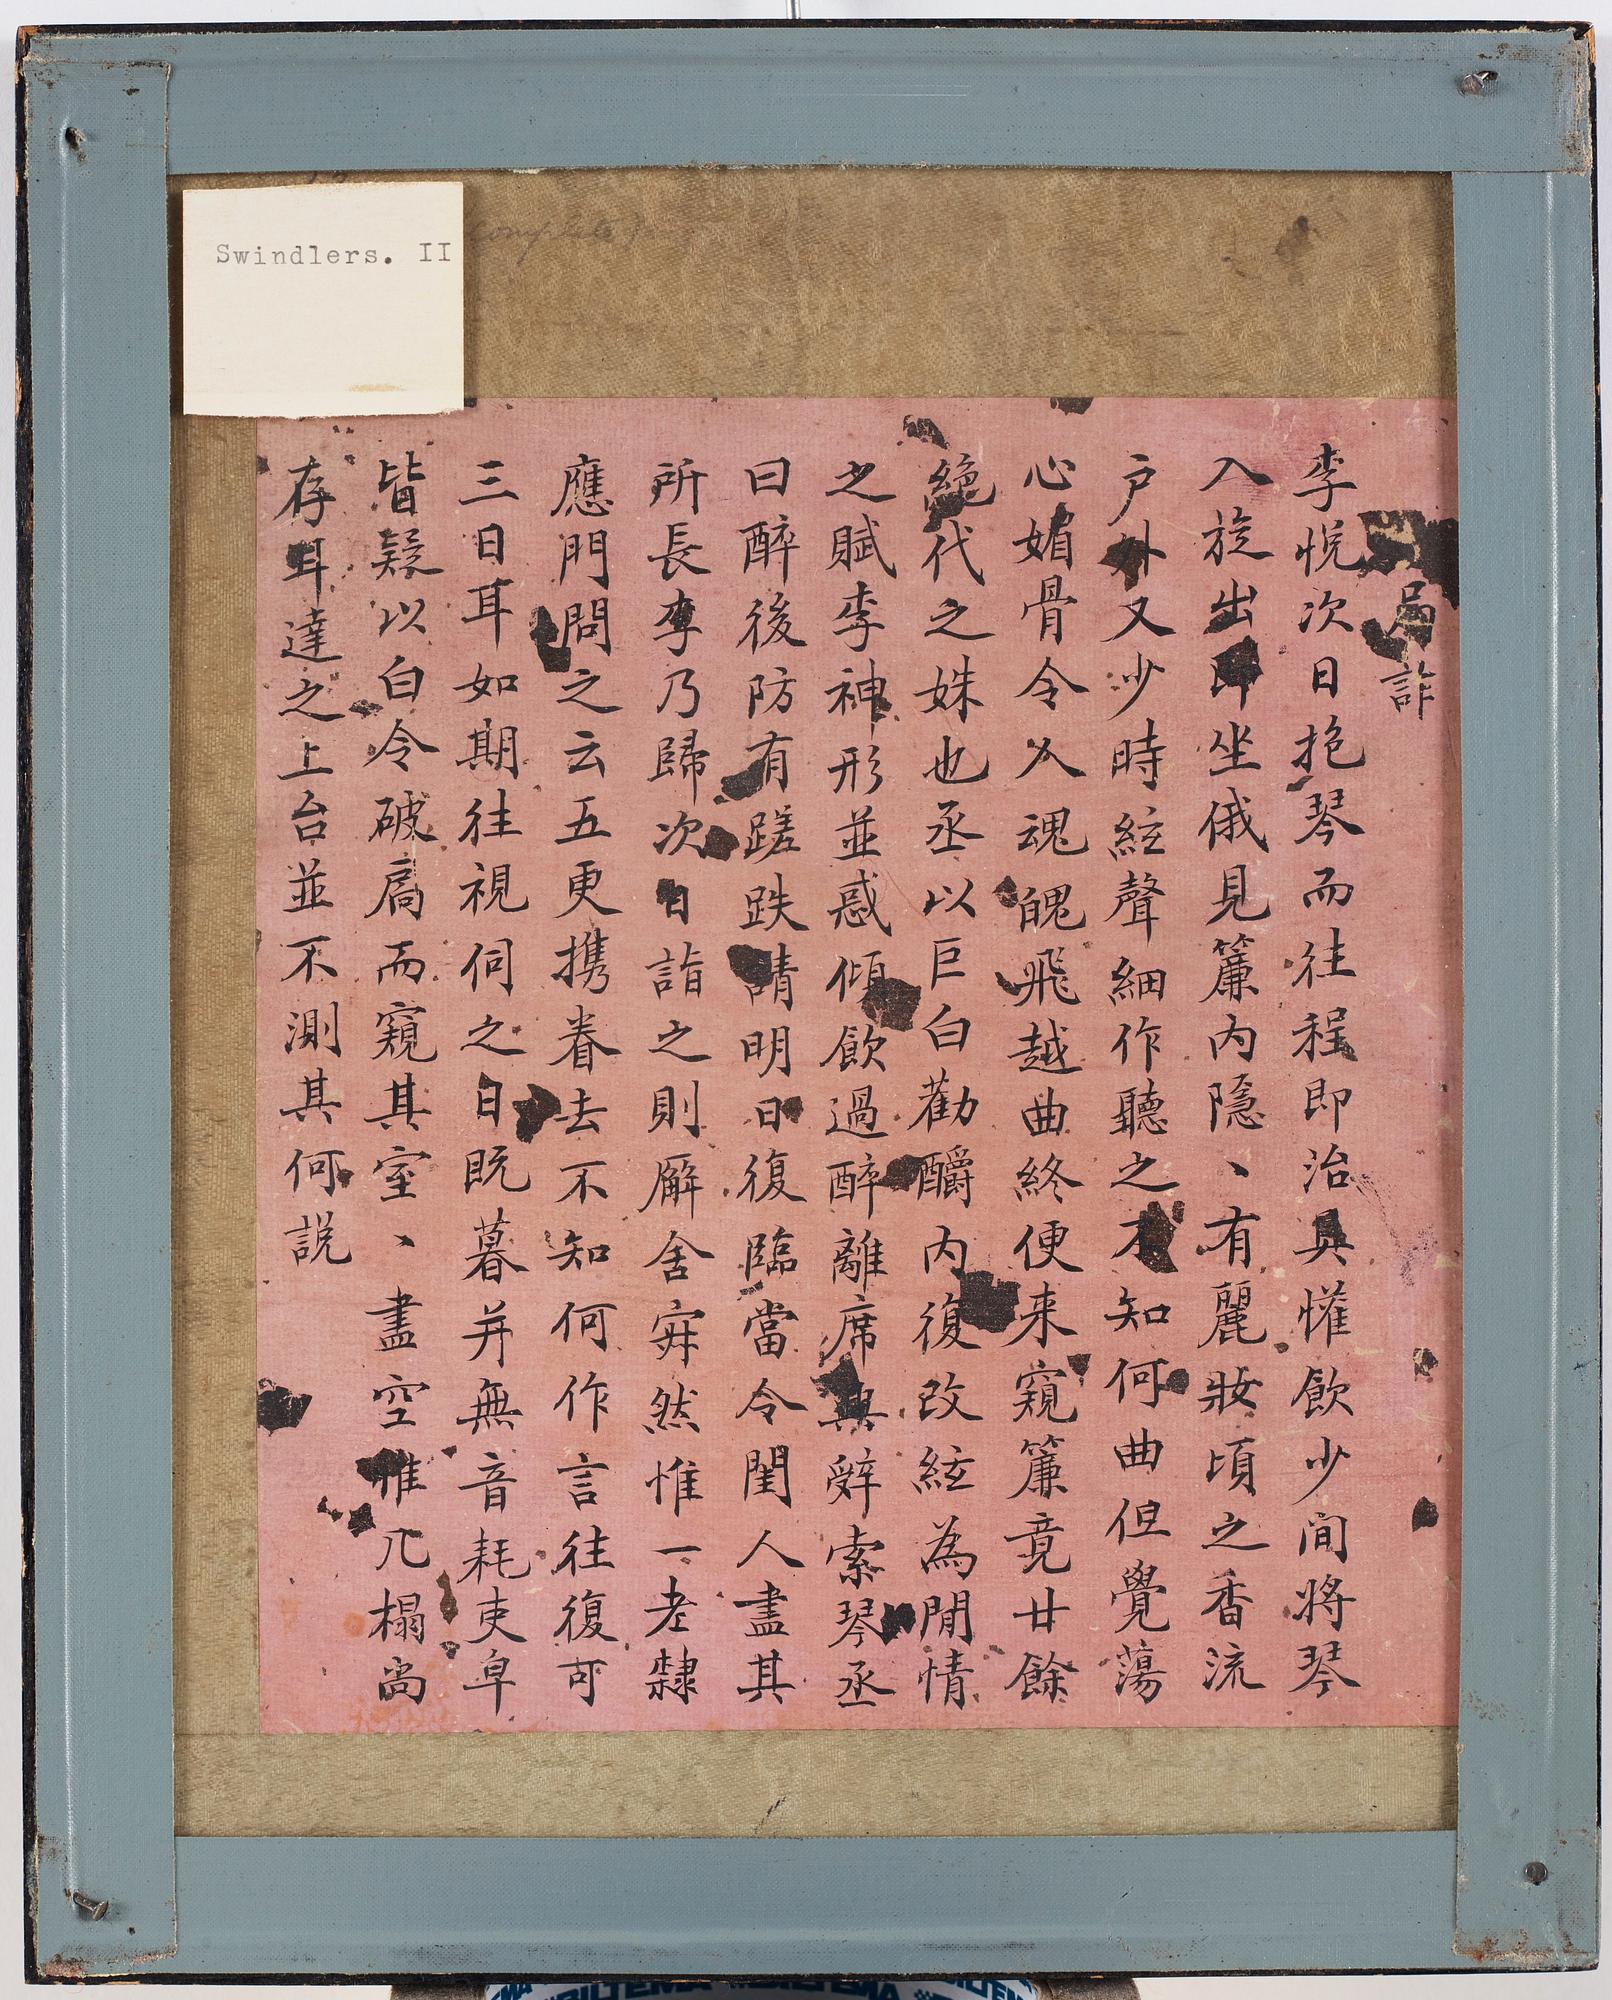 Swindlers. II
complete)
局詐
李悅次日抱琴而往程即治具懽飲少間將琴
入旋出即坐俄見簾内隱、有麗妝頃之香流
户外又少時絃聲細作聽之不知何曲但覺蕩
心媚骨令人魂魄飛越曲終便来窺簾竟廿餘
絶代之姝也丞以巨白勸釂内復改絃為閒情
之賦李神形並惑傾飲過醉離席興辤索琴丞
曰醉後防有蹉跌請明日復臨當令閨人盡其
所長李乃歸次日詣之則廨舍寂然惟一老隸
應門問之云五更攜眷去不知何作言往復可
三日耳如期往視伺之日既暮并無音耗吏皁
皆疑以白令破扃而窺其室、盡空惟几榻尚
存耳達之上台並不測其何説
BILTEMA